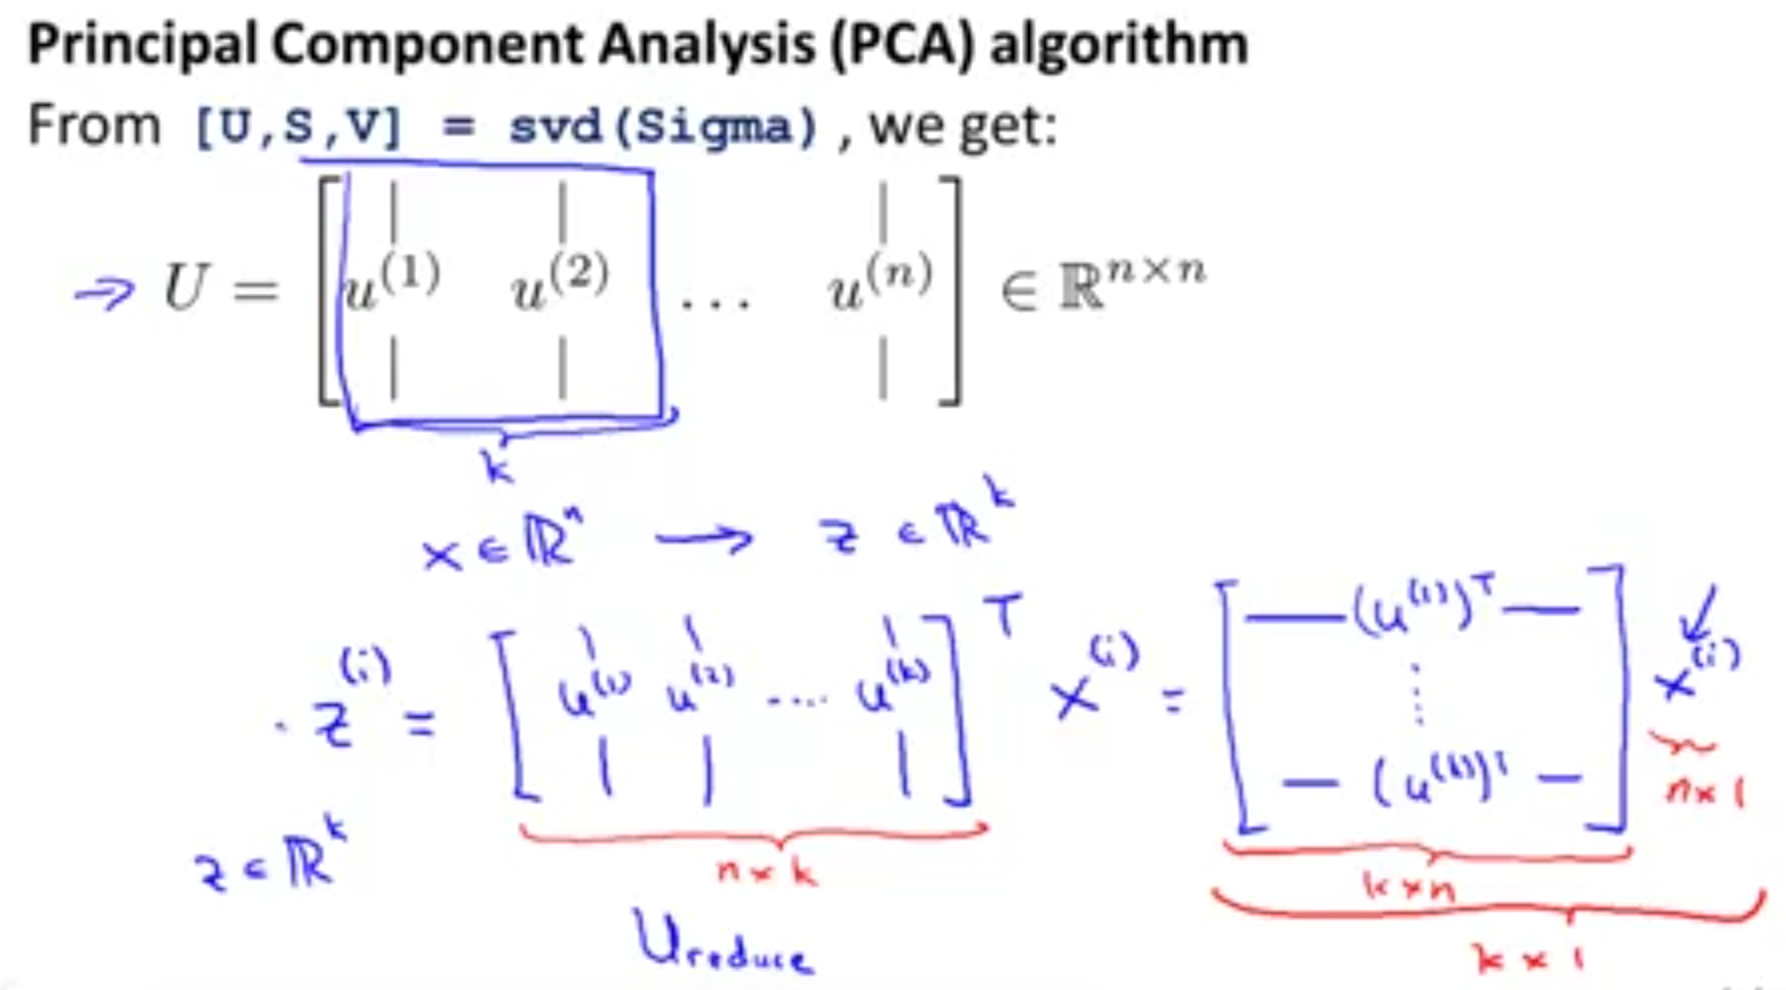 Principal Component Analysis (PCA) algorithm
From [U,S,V] = svd(Sigma) , we get:
→ U = [ u^(1) u^(2) ... u^(n) ] ∈ ℝ^{n×n}
k
x ∈ ℝ^n → z ∈ ℝ^k
z^(i) = [ u^(1) u^(2) .... u^(k) ]^T x^(i) = [ (u^(1))^T ⋮ (u^(k))^T ] x^(i)
n×1
z ∈ ℝ^k
n×k
k×n
U reduce
k×1